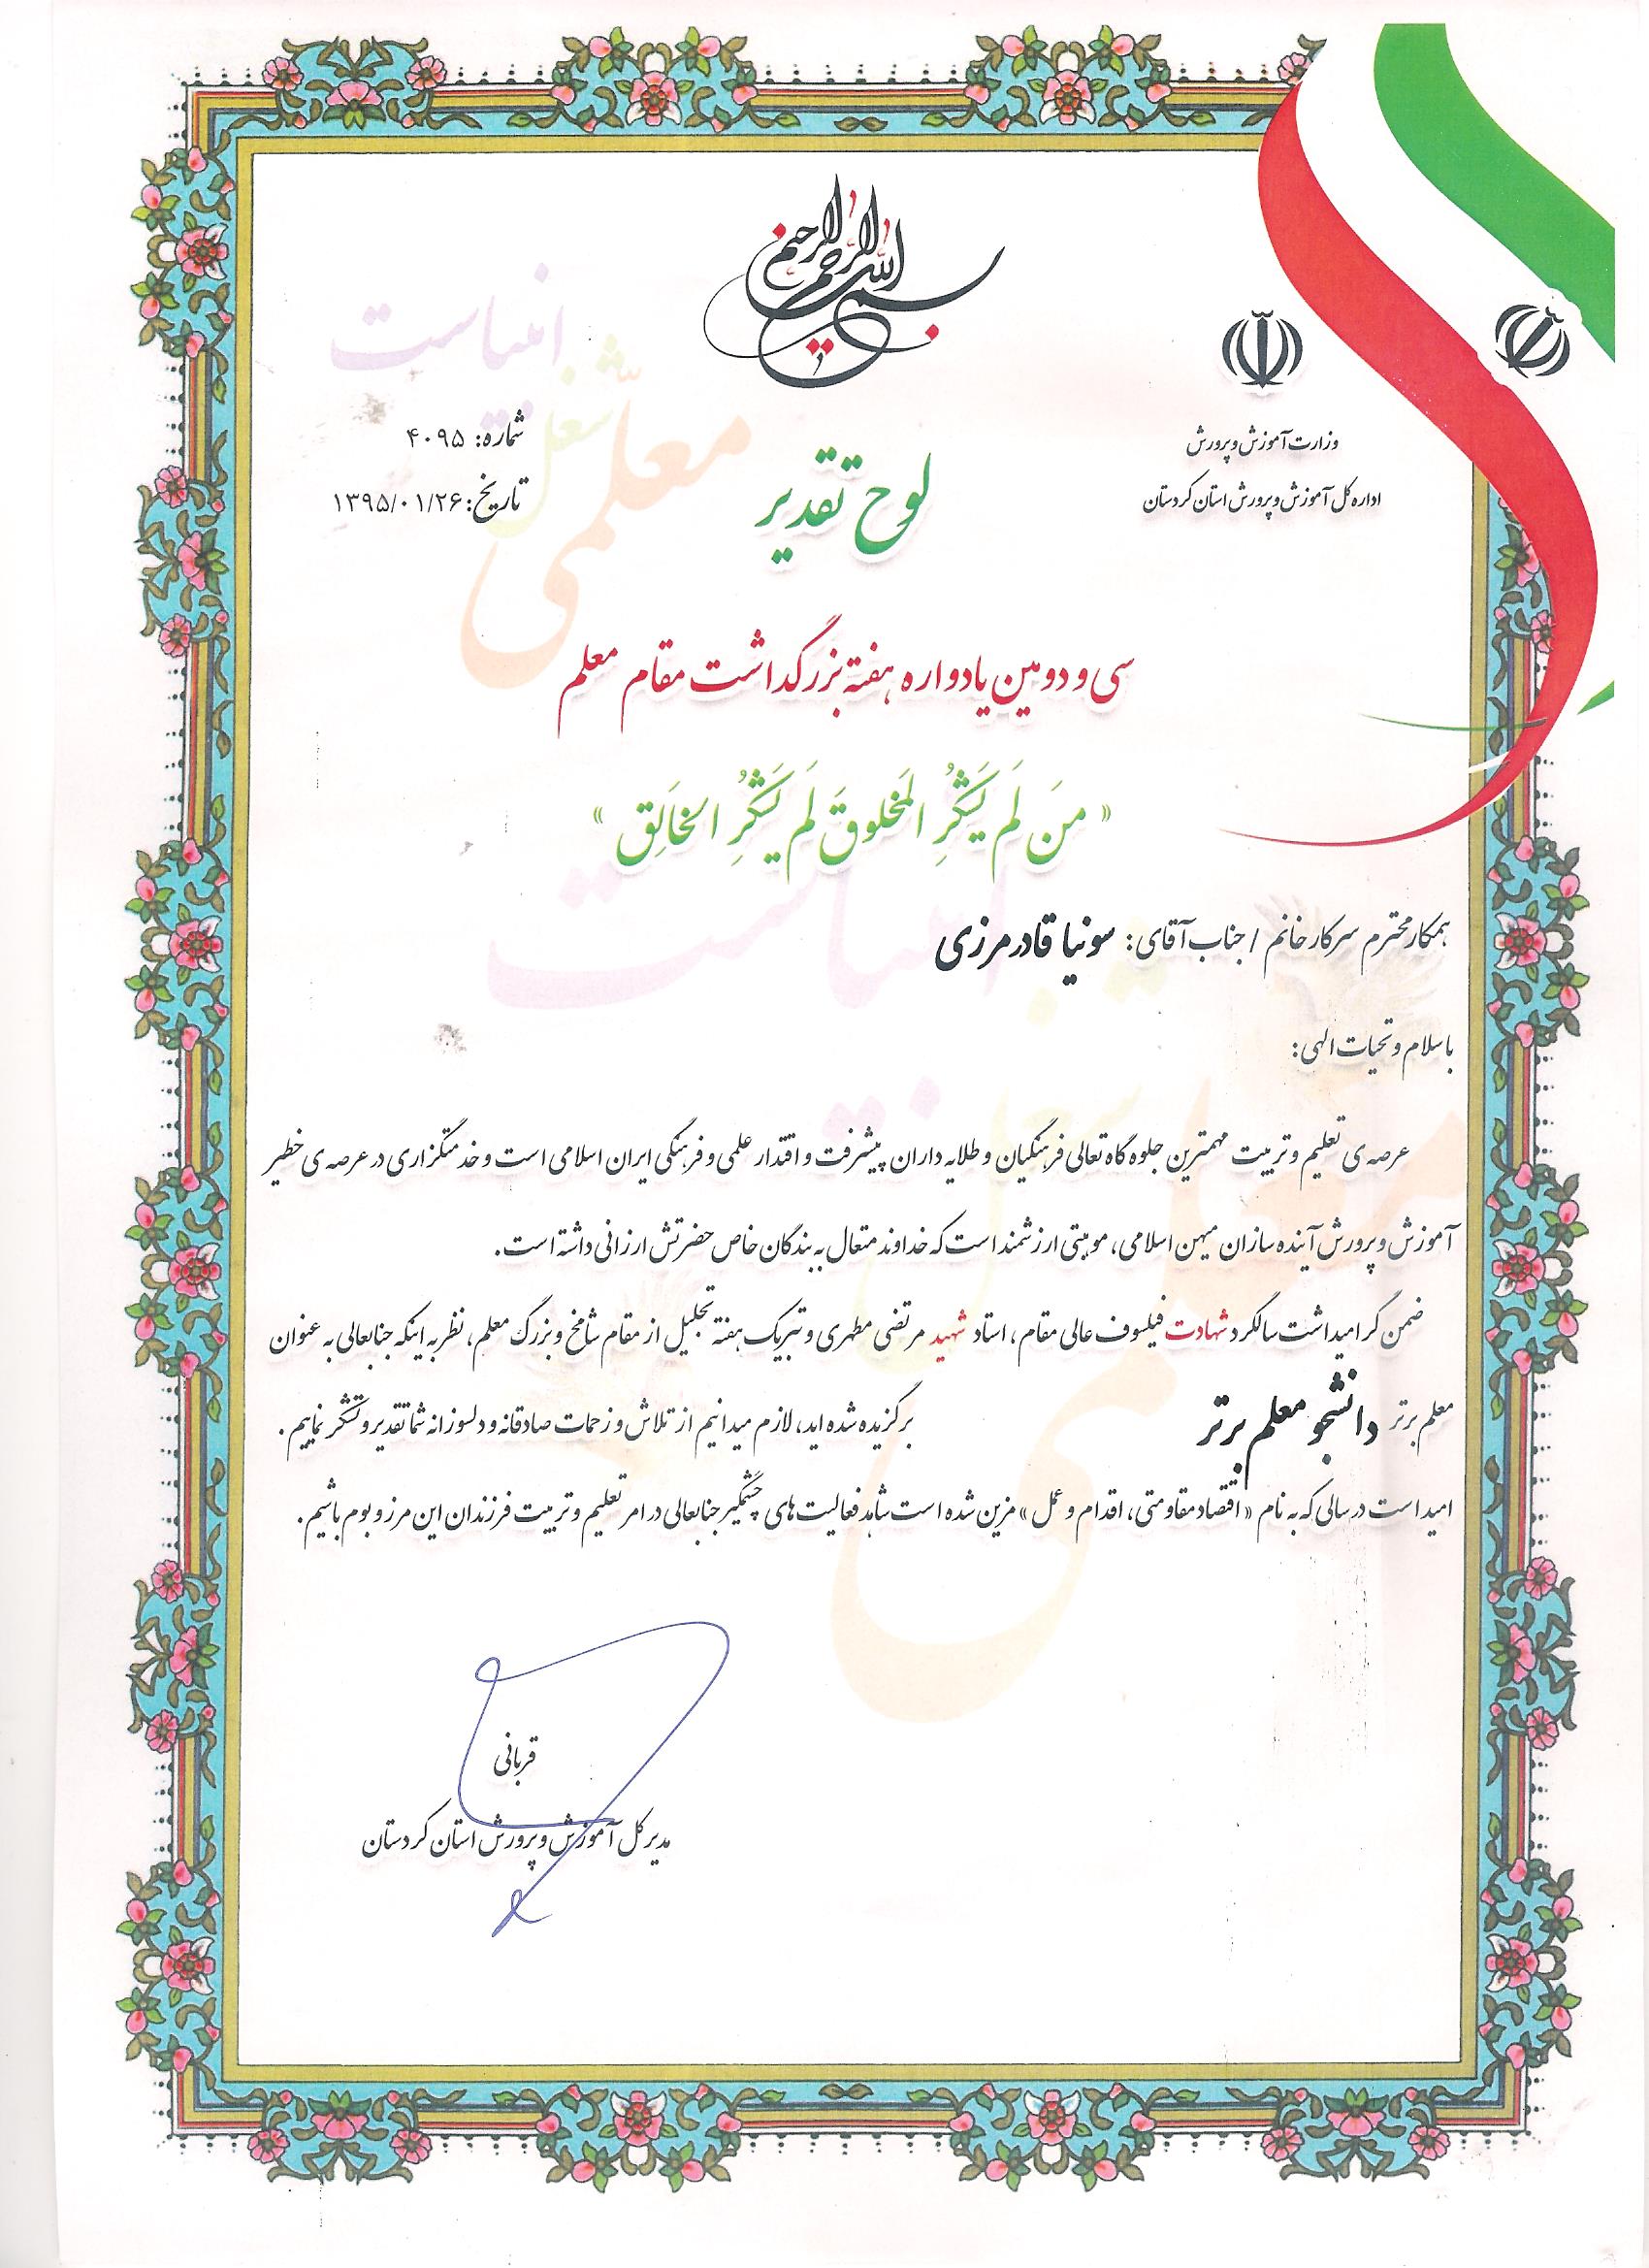 بسم الله الرحمن الرحیم
وزارت آموزش و پرورش
اداره کل آموزش و پرورش استان کردستان
شماره: ۴۰۹۵
تاریخ: ۱۳۹۵/۰۱/۲۶
لوح تقدیر
سی و دومین یادواره هفته بزرگداشت مقام معلم
« مَن لَم یَشکُرِ المَخلوقَ لَم یَشکُرِ الخالِق »
همکار محترم سرکار خانم / جناب آقای: سونیا قادرمرزی
با سلام و تحیات الهی:
عرصه ی تعلیم و تربیت مهمترین جلوه گاه تعالی فرهنگیان و طلایه داران پیشرفت و اقتدار علمی و فرهنگی ایران اسلامی است و خدمتگزاری در عرصه ی خطیر
آموزش و پرورش آینده سازان میهن اسلامی، موهبتی ارزشمند است که خداوند متعال به بندگان خاص حضرتش ارزانی داشته است.
ضمن گرامیداشت سالگرد شهادت فیلسوف عالی مقام، استاد شهید مرتضی مطهری و تبریک هفته تجلیل از مقام شامخ و بزرگ معلم، نظر به اینکه جنابعالی به عنوان
معلم برتر دانشجو معلم برتر برگزیده شده اید، لازم میدانیم از تلاش و زحمات صادقانه و دلسوزانه شما تقدیر و تشکر نماییم.
امید است در سالی که به نام « اقتصاد مقاومتی، اقدام و عمل » مزین شده است شاهد فعالیت های چشمگیر جنابعالی در امر تعلیم و تربیت فرزندان این مرز و بوم باشیم.
قربانی
مدیر کل آموزش و پرورش استان کردستان
معلّمی
شغل
انبیاست
معلّمی
شغل
انبیاست